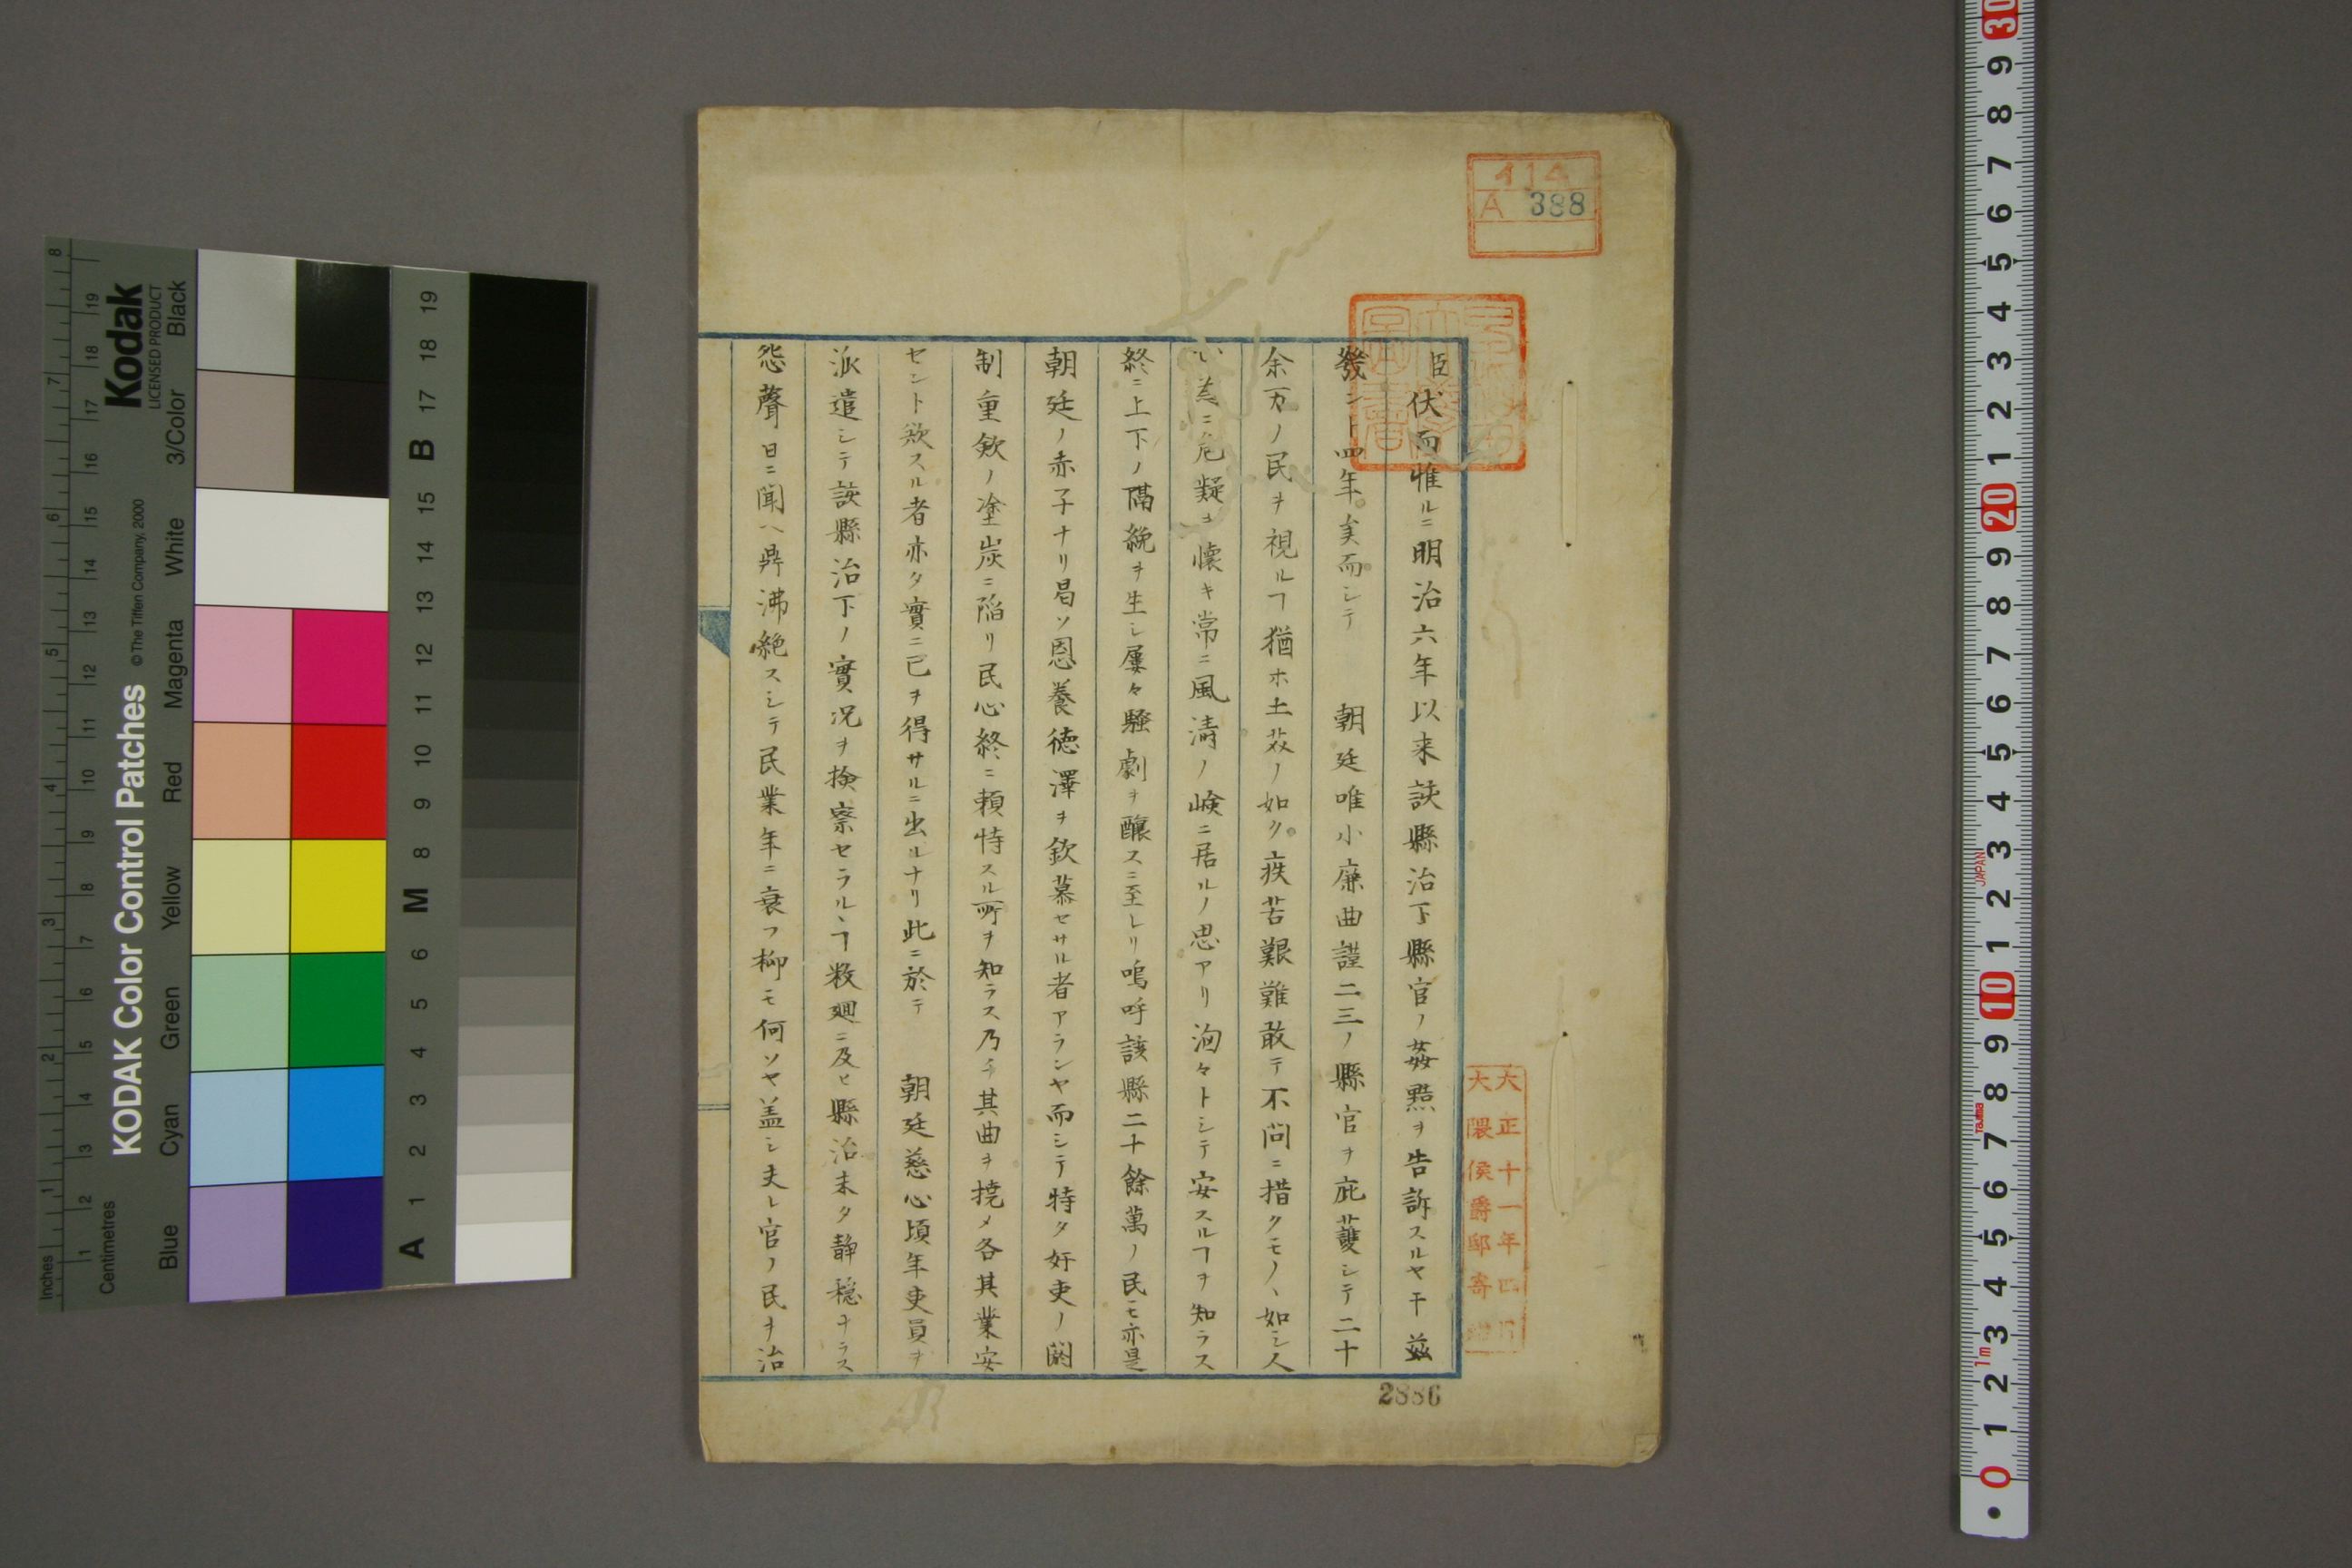 臣伏而惟ルニ明治六年以来該縣治下縣官ノ姦黠ヲ告訴スルヤ干茲
發ント四年矣而シテ　朝廷唯小廉曲謹二三ノ縣官ヲ庇護シテ二十
余万ノ民ヲ視ルヿ猶ホ土芥ノ如ク疾苦艱難敢テ不問ニ措クモノヽ如シ人
心為ニ危疑ヲ懐キ常ニ風濤ノ嶮ニ居ルノ思アリ洶々トシテ安スルヿヲ知ラス
終ニ上下ノ隔絶ヲ生シ屢々騒劇ヲ醸スニ至レリ嗚呼該縣二十餘萬ノ民モ亦是
朝廷ノ赤子ナリ曷ソ恩養徳澤ヲ欽慕セサル者アランヤ而シテ特タ奸吏ノ
制重斂ノ塗炭ニ陥リ民心終ニ頼恃スル所ヲ知ラス乃チ其曲ヲ撓メ各其業安
セント欲スル者亦タ實ニ已ヲ得サルニ出ルナリ此ニ於テ　朝廷慈心頃年吏員ヲ
派遣シテ該縣治下ノ實況ヲ検察セラルヽヿ数廻ニ及ヒ縣治未タ静穏ナラス
怨聲日ニ聞ヘ鼎沸絶スシテ民業年ニ衰フ抑モ何ソヤ盖シ夫レ官ノ民ヲ治
2886
イ14
A 388
大正十一年四月
大隈侯爵邸寄贈
KODAK Color Control Patches
© The Tiffen Company, 2000
Kodak
LICENSED PRODUCT
Inches
Centimetres
Blue
Cyan
Green
Yellow
Red
Magenta
White
3/Color
Black
A 1 2 3 4 5 6 M 8 9 10 11 12 13 14 15 B 17 18 19
JAPAN
TaJIma
1m